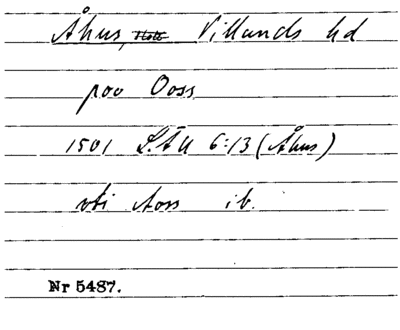 Åhus, Villands hd
poo Ooss
1501 LÄU 6:13 (Åhus)
vti Aoss ib.
Nr 5487.